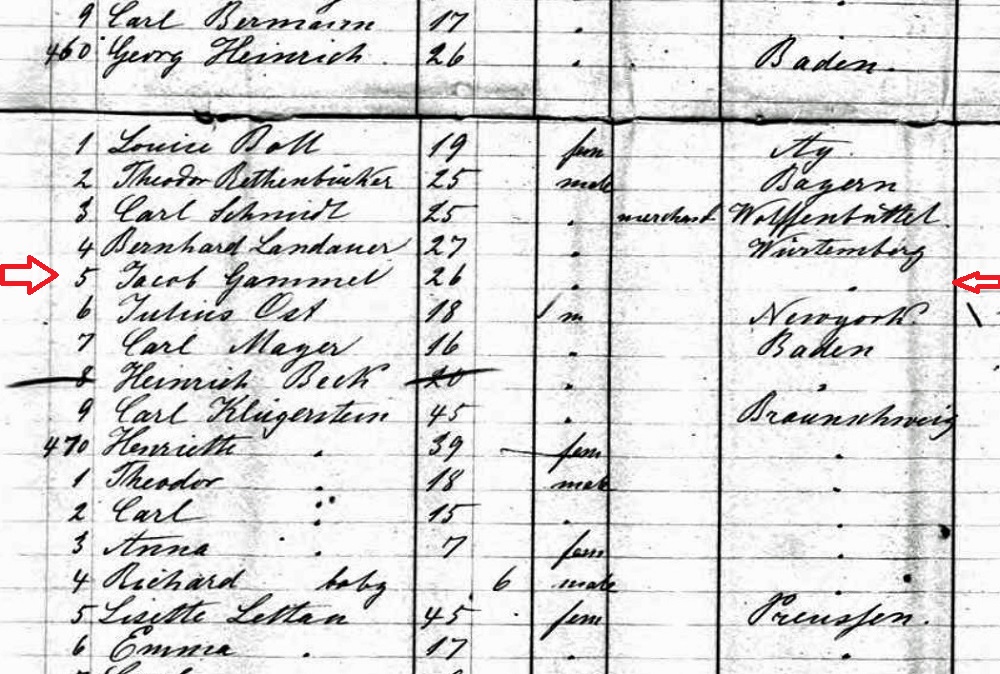 9 Carl Bermann 17 "
460 Georg Heinrich 26 " Baden.
1 Louise Boll 19 fem
2 Theodor Rethenbücker 25 male Bayern
3 Carl Schmidt 25 " merchand Wolffenbüttel
4 Bernhard Landauer 27 " Würtemberg
5 Jacob Gammel 26 " "
6 Julius Ost 18 m Newyork
7 Carl Mayer 16 " Baden
8 Heinrich Beck 20 " "
9 Carl Klügerstein 45 " Braunschweig
470 Henriette " 39 fem "
1 Theodor " 18 male "
2 Carl " 15 " "
3 Anna " 7 fem "
4 Richard baby 6 male "
5 Lisette Lettau 45 fem Preussen.
6 Emma " 17 " "